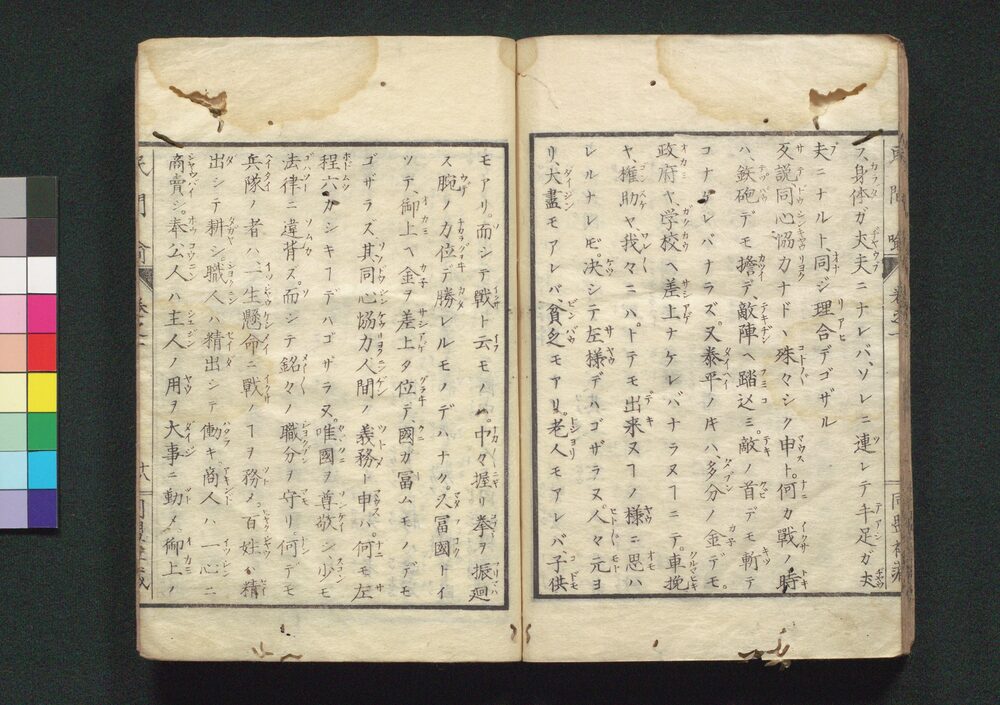 ス、身体ガ夫夫ニナレバ、ソレニ連レテ手足ガ夫
夫ニナルト、同ジ理合デゴザル
又説同心協力ナドヽ殊々シク申ト、何カ戦ノ時
ハ、鉄砲デモ擔デ敵陣ヘ踏込ミ、敵ノ首デモ斬テ
コナケレバナラズ、又泰平ノキハ、多分ノ金デモ。
政府ヤ、学校ヘ差上ナケレバナラヌヿニテ、車挽
ヤ、権助ヤ、我々ニハ、トテモ出来ヌヿノ様ニ思ハ
レルナレ𪜈、决シテ左様デハゴザラヌ、人々元ヨ
リ、大盡モアレバ貧乏モアリ。老人モアレバ、子供
モアリ。而シテ戦ト云モノハ。中々握リ拳ヲ振廻
ス腕ノ力位デ勝レルモノデハナク。又冨國トイ
ソテ、御上ヘ金ヲ差上タ位デ、國ガ冨ムモノデモ
ゴザラズ、其同心協力人間ノ義務ト申ハ。何モ左
程六カシキヿデハゴザラヌ。唯國ヲ尊敬シ少モ
法律ニ違背ズ。而シテ銘々ノ職分ヲ守リ何デモ
兵隊ノ者ハ、一生懸命ニ戦ノヿヲ務メ、百姓ハ精
出シテ耕シ、職人ハ精出シテ働キ、商人ハ一心ニ
商賣シ。奉公人ハ主人ノ用ヲ大事ニ勤メ、御上ノ